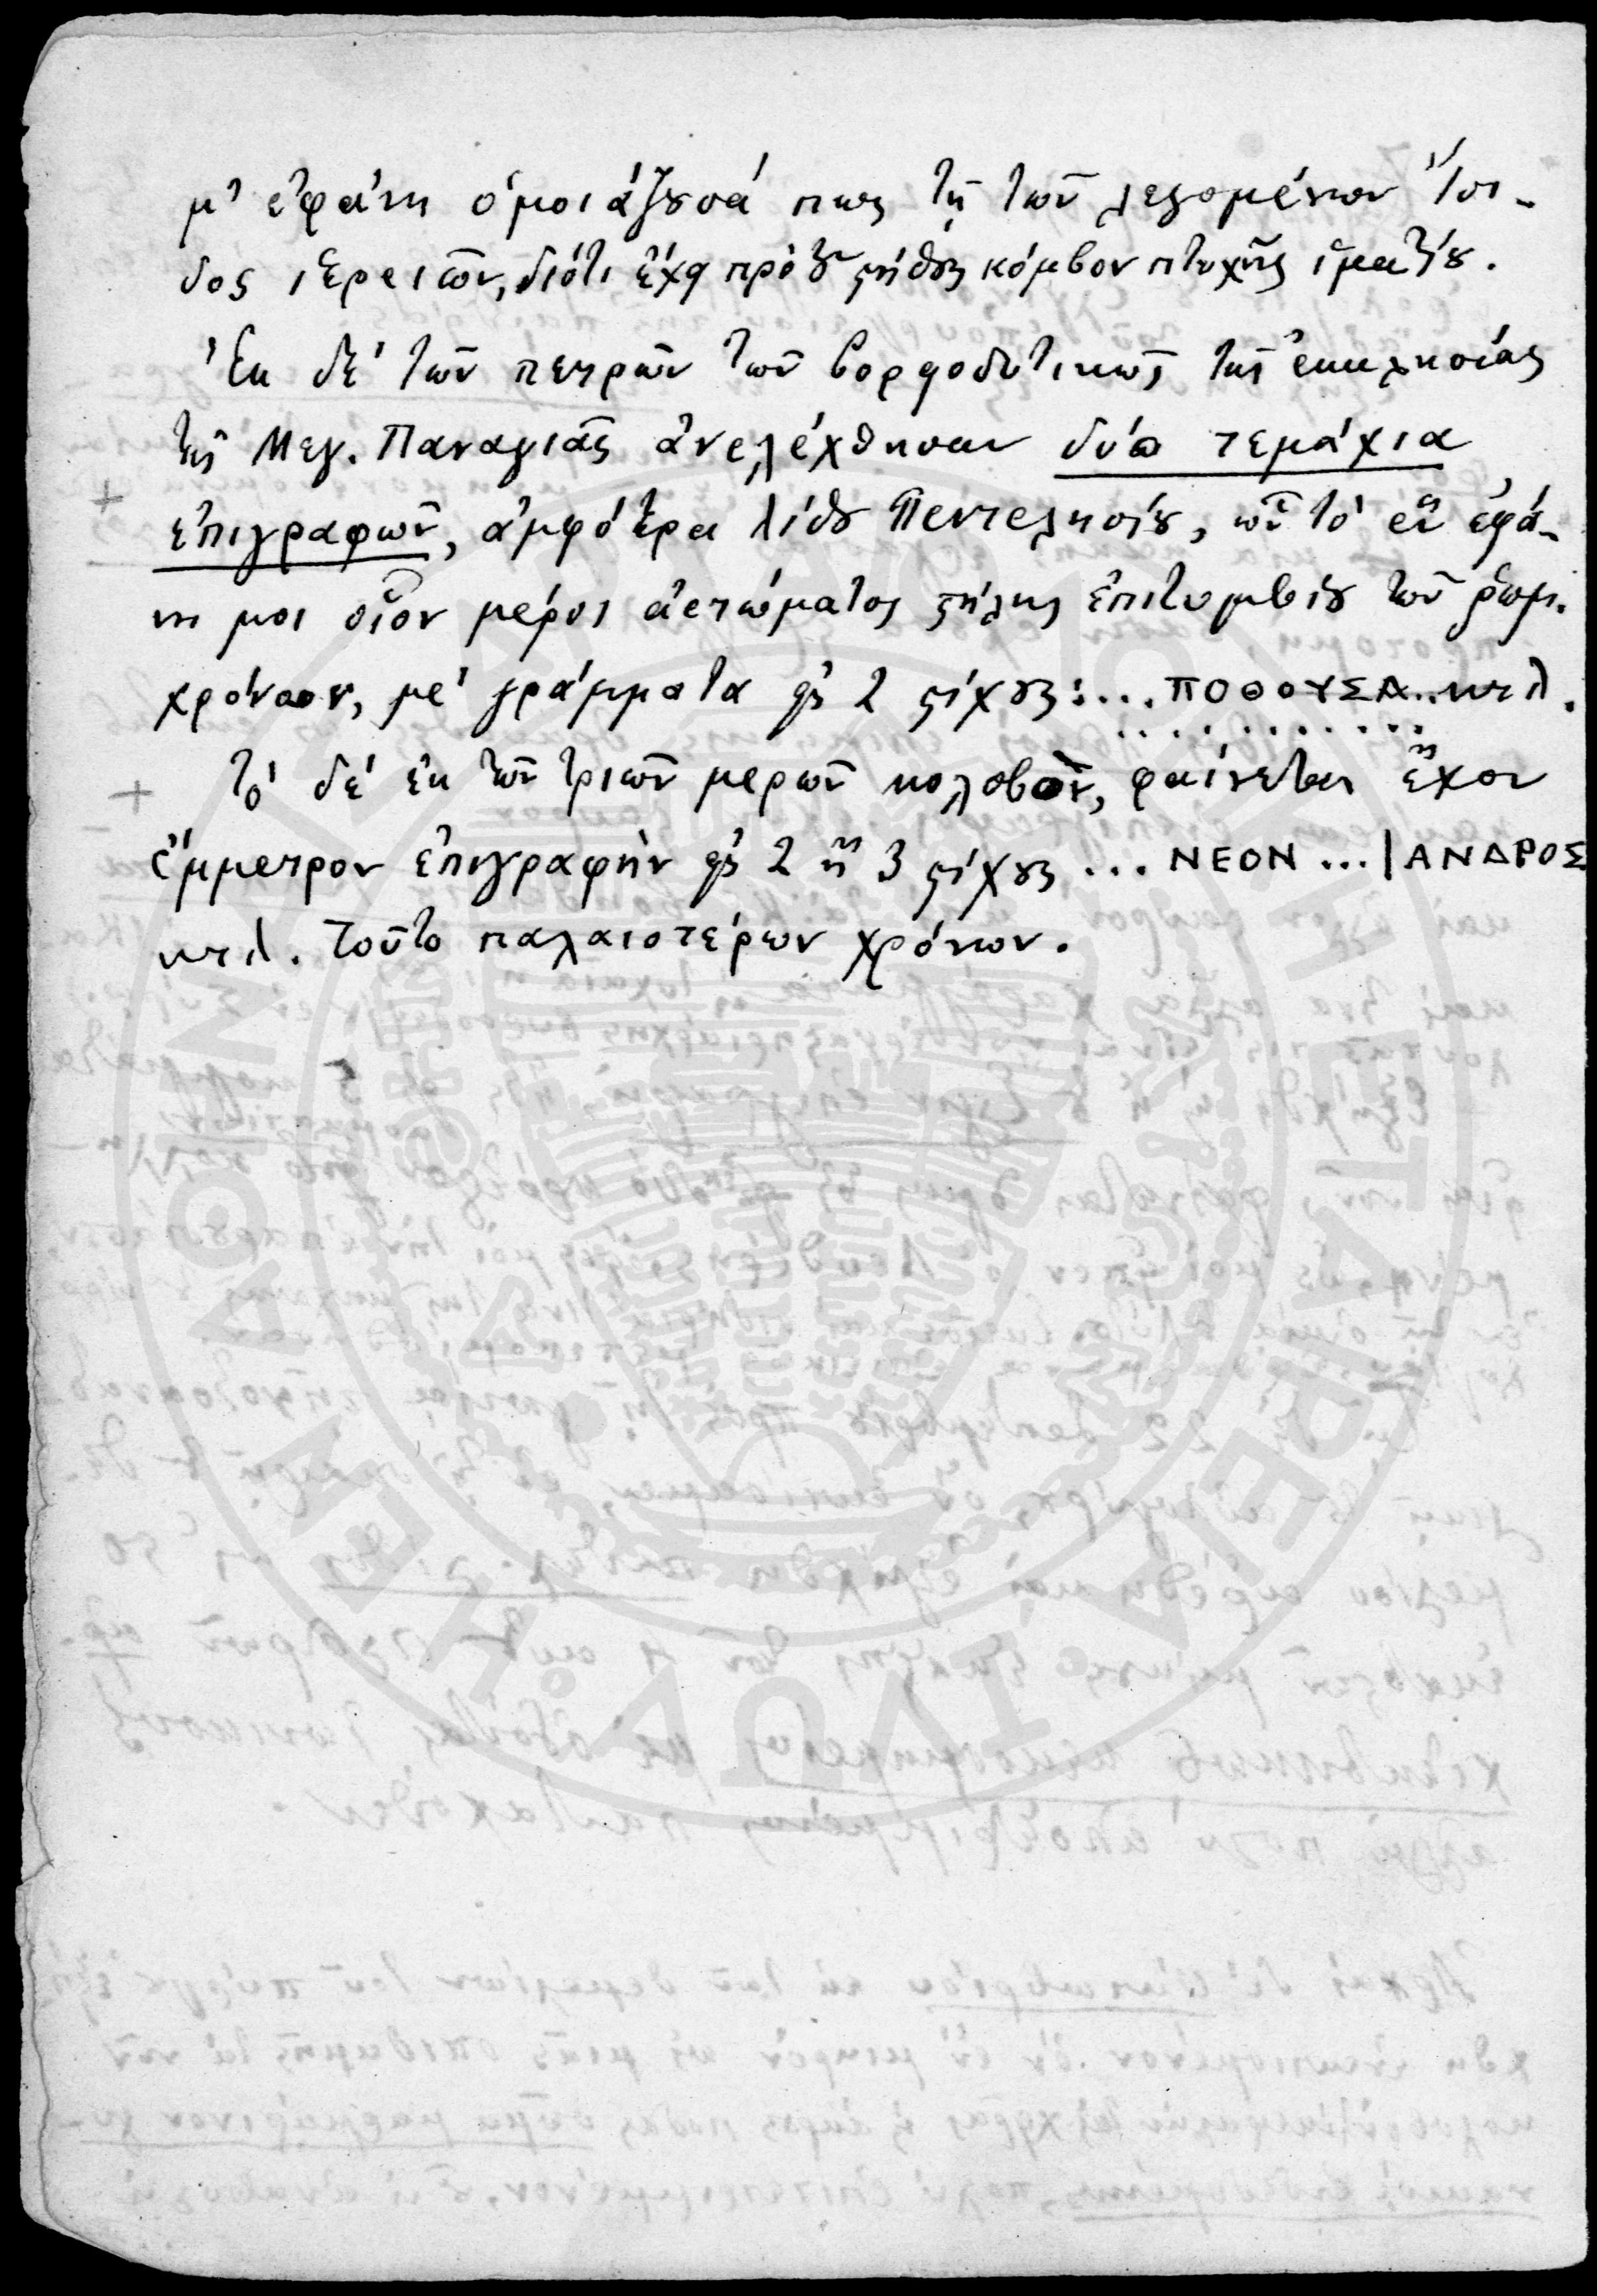 μ' ἐφάνη ὁμοιάζουσά πως τῇ τῶν λεγομένων Ἴσι-
δος ἱερειῶν, διότι ἔχει πρὸ τοῦ στήθους κόμβον πτυχῆς ἱματίου.
Ἐκ δὲ τῶν πετρῶν τῶν βορειοδυτικῶς τῆς ἐκκλησίας
τῆς Μεγ. Παναγιᾶς ἀνελέχθησαν δύο τεμάχια
ἐπιγραφῶν, ἀμφότερα λίθου Πεντελησίου, ὧν τὸ ἓν ἐφά-
νη μοι οἷον μέρος ἀετώματος στήλης ἐπιτυμβίου τῶν ῥωμ.
χρόνων, μὲ γράμματα εἰς 2 στίχους: ... ΠΟΘΟΥΣΑ.. κτλ.
Τὸ δὲ ἐκ τῶν τριῶν μερῶν κολοβόν, φαίνεται ἔχον
ἔμμετρον ἐπιγραφὴν εἰς 2 ἢ 3 στίχους ... ΝΕΟΝ ... | ΑΝΔΡΟΣ
κτλ. Τοῦτο παλαιοτέρων χρόνων.